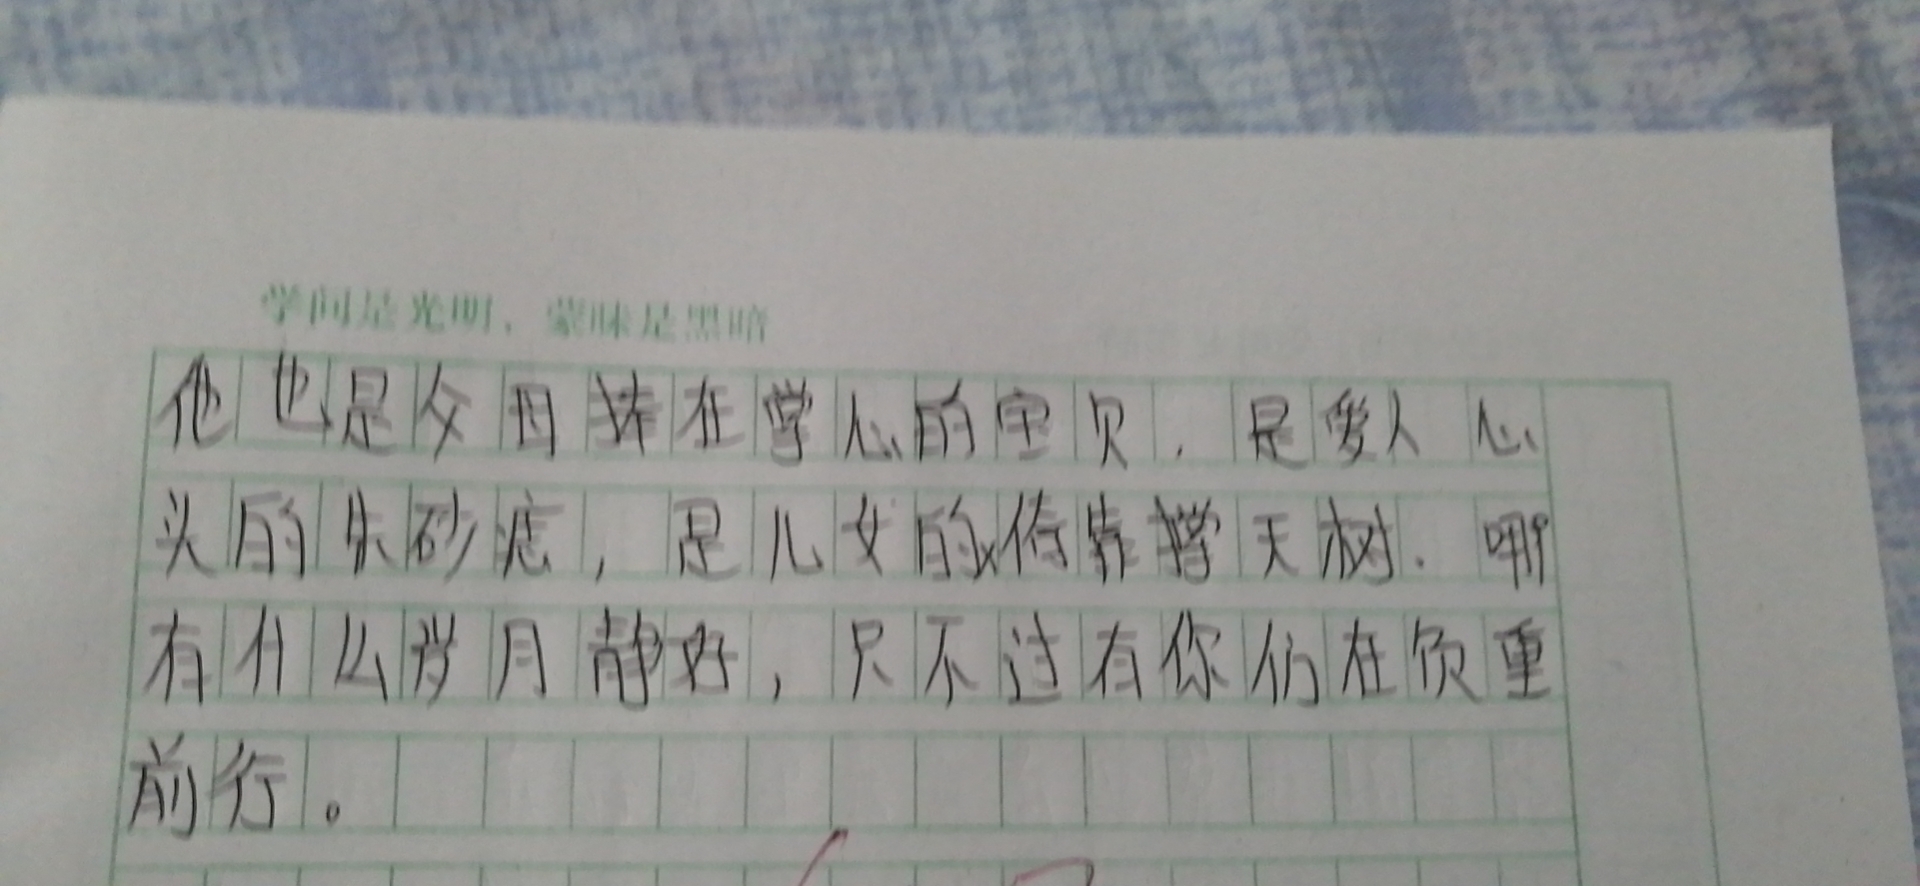 学问是光明，蒙昧是黑暗
他也是父母捧在掌心的宝贝，是爱人心
头的朱砂痣，是儿女的倚靠撑天树．哪
有什么岁月静好，只不过有你们在负重
前行。